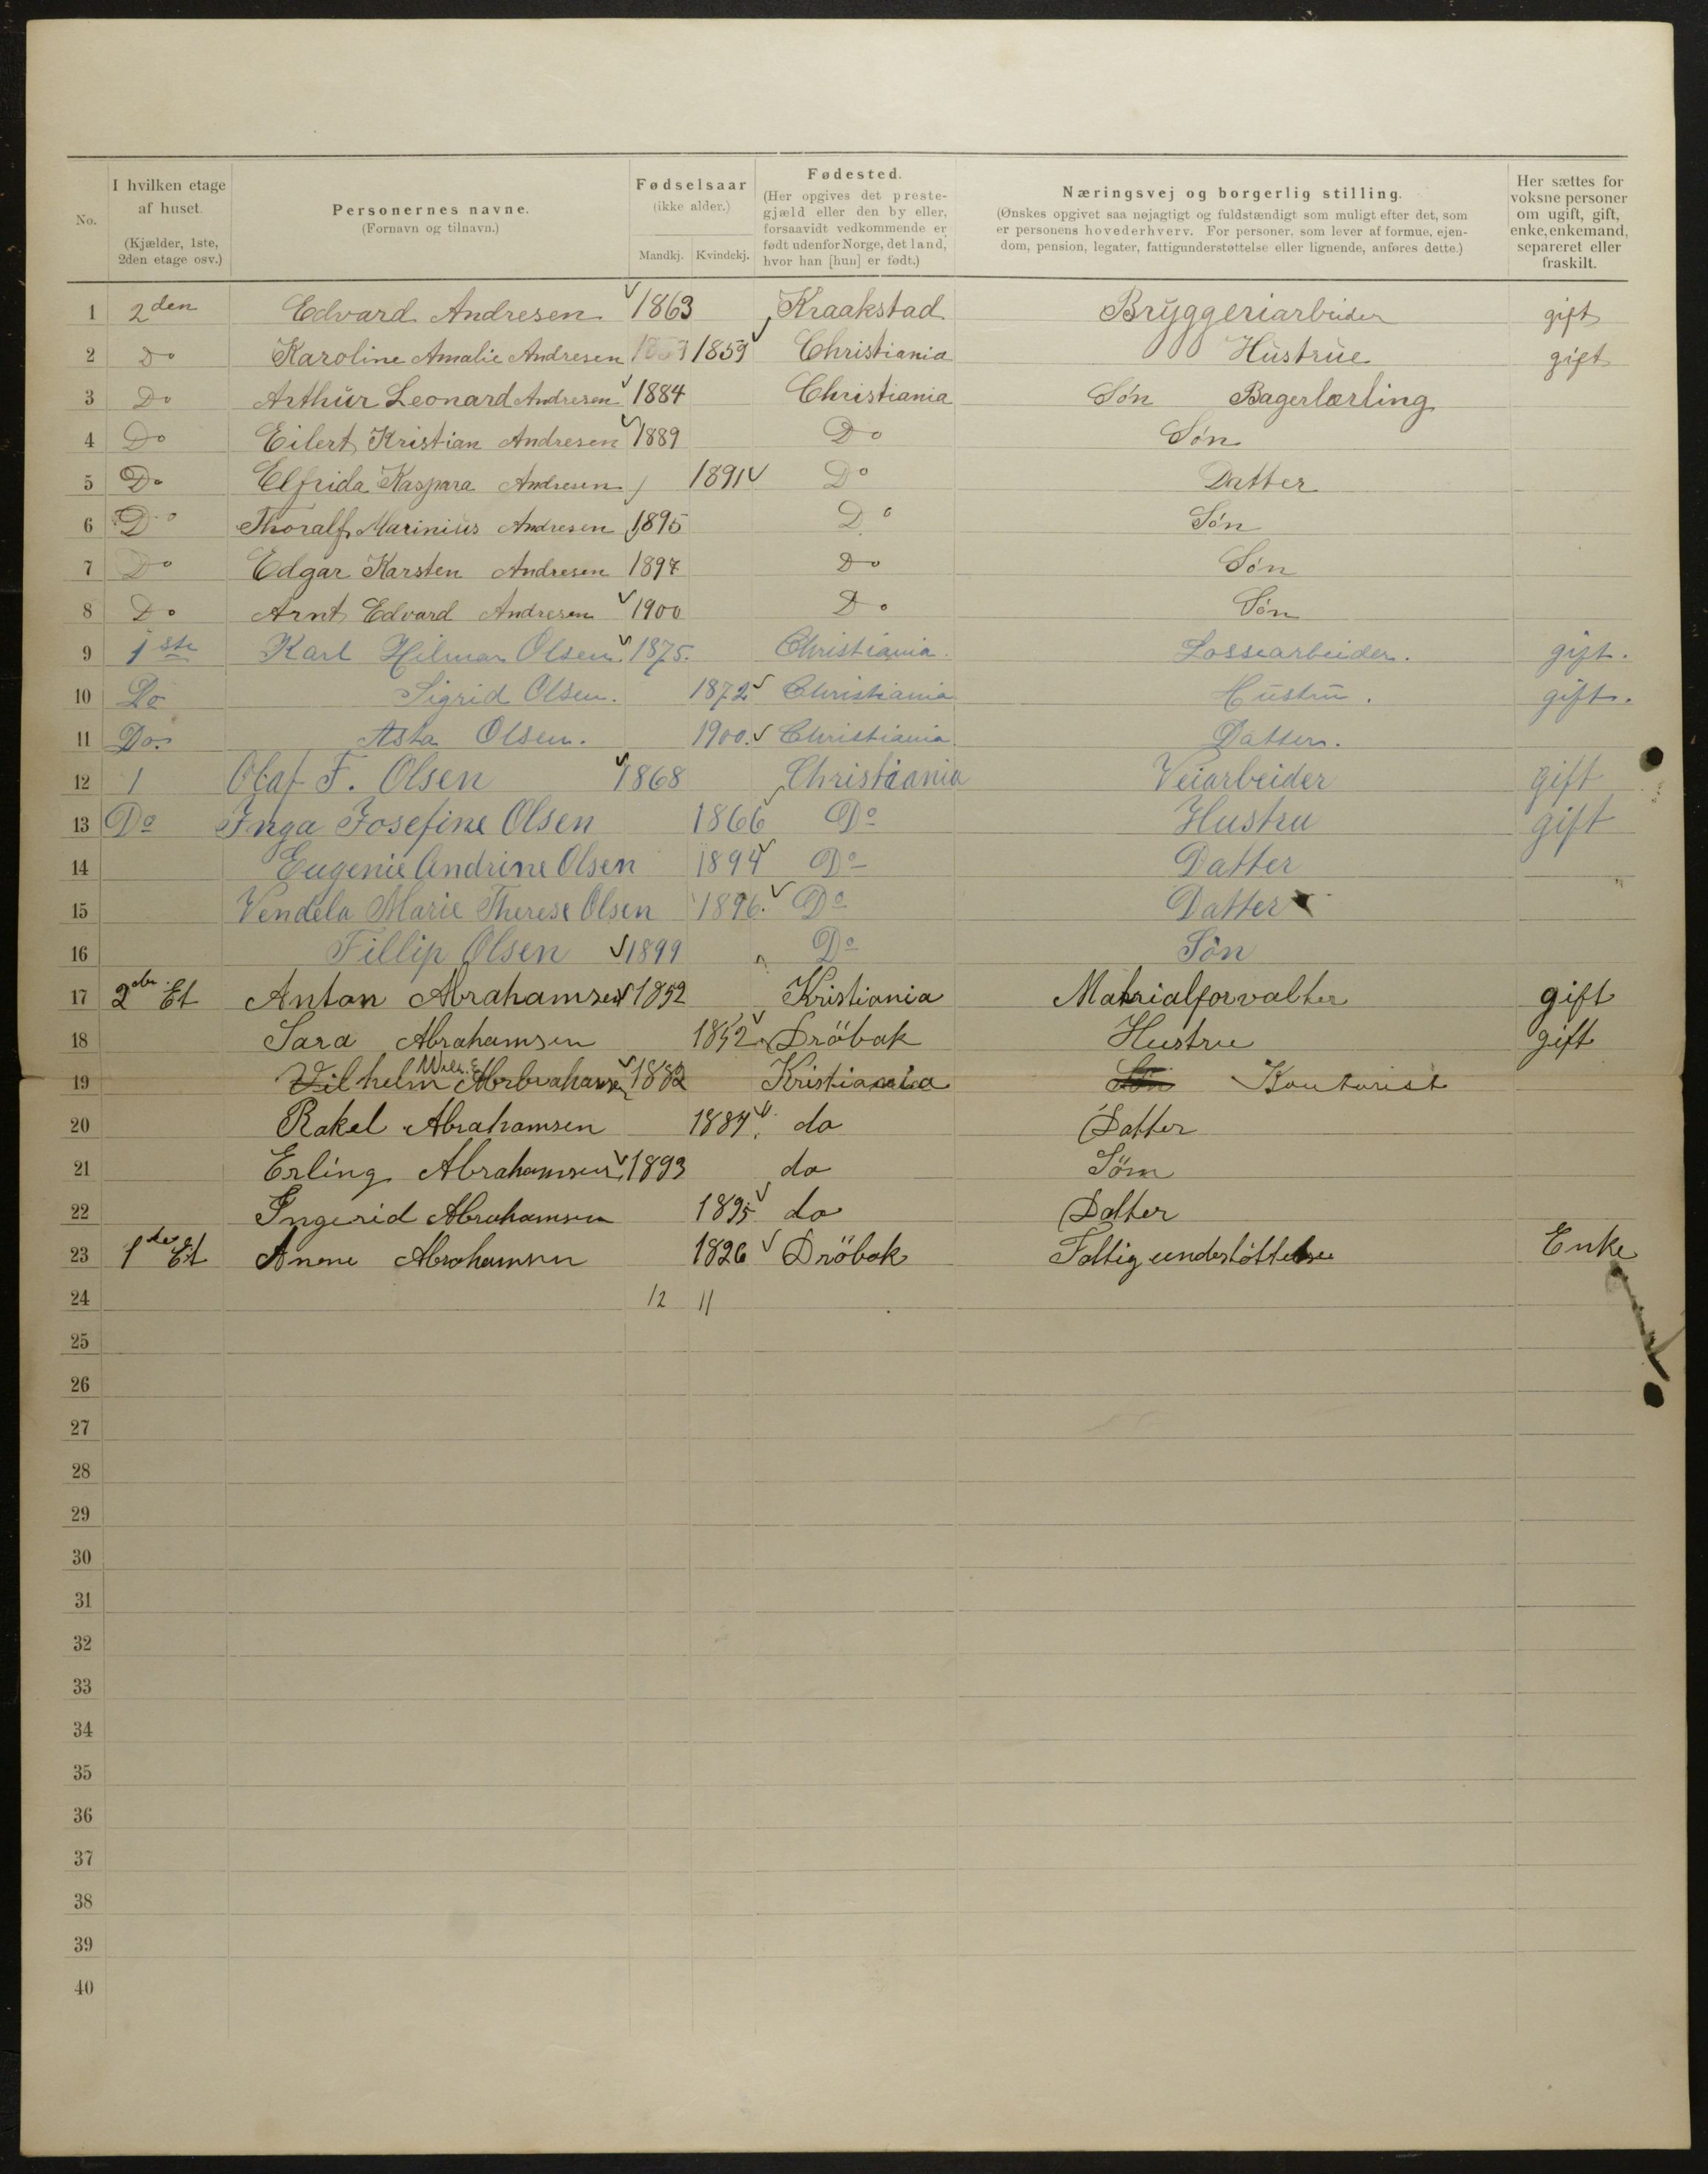 No.
I hvilken etage af huset. (Kjælder, 1ste, 2den etage osv.)
Personernes navne. (Fornavn og tilnavn.)
Fødselsaar (ikke alder.) Mandkj. Kvindekj.
Fødested. (Her opgives det prestegjæld eller den by eller, forsaavidt vedkommende er født udenfor Norge, det land, hvor han [hun] er født.)
Næringsvej og borgerlig stilling. (Ønskes opgivet saa nøjagtigt og fuldstændigt som muligt efter det, som er personens hovederhverv. For personer, som lever af formue, ejendom, pension, legater, fattigunderstøttelse eller lignende, anføres dette.)
Her sættes for voksne personer om ugift, gift, enke, enkemand, separeret eller fraskilt.
1 2den Edvard Andresen 1863 Kraakstad Bryggeriarbeider gift
2 Do Karoline Amalie Andresen 1859 1859 Christiania Hustrue gift
3 Do Arthur Leonard Andresen 1884 Christiania Søn Bagerlærling
4 Do Eilert Kristian Andresen 1889 Do Søn
5 Do Elfrida Kaspara Andresen 1891 Do Datter
6 Do Thoralf Marinius Andresen 1895 Do Søn
7 Do Edgar Karsten Andresen 1897 Do Søn
8 Do Arnt Edvard Andresen 1900 Do Søn
9 1ste Karl Hilmar Olsen 1875. Christiania. Lossearbeider. gift.
10 Do Sigrid Olsen. 1872 Christiania Hustru. gift.
11 Do. Asta Olsen. 1900. Christiania. Datter.
12 1 Olaf F. Olsen 1868 Christiania Veiarbeider gift
13 Do Inga Josefine Olsen 1866 Do Hustru gift
14 Eugenie Andrine Olsen 1894 Do Datter
15 Vendela Marie Therese Olsen 1896. Do Datter
16 Fillip Olsen 1899 Do Søn
17 2den Et Anton Abrahamsen 1852 Kristiania Matrialforvalter gift
18 Sara Abrahamsen 1852 Dröbak Hustru gift
19 Vilhelm Abrahamsen 1882 Kristiania Søn Kontorist
20 Rakel Abrahamsen 1884. do Datter
21 Erling Abrahamsen 1893 do Sön
22 Ingerid Abrahamsen 1895 do Datter
23 1ste Et Anne Abrahamsen 1826 Dröbak Fattigunderstöttelse Enke
24 12 11
25
26
27
28
29
30
31
32
33
34
35
36
37
38
39
40